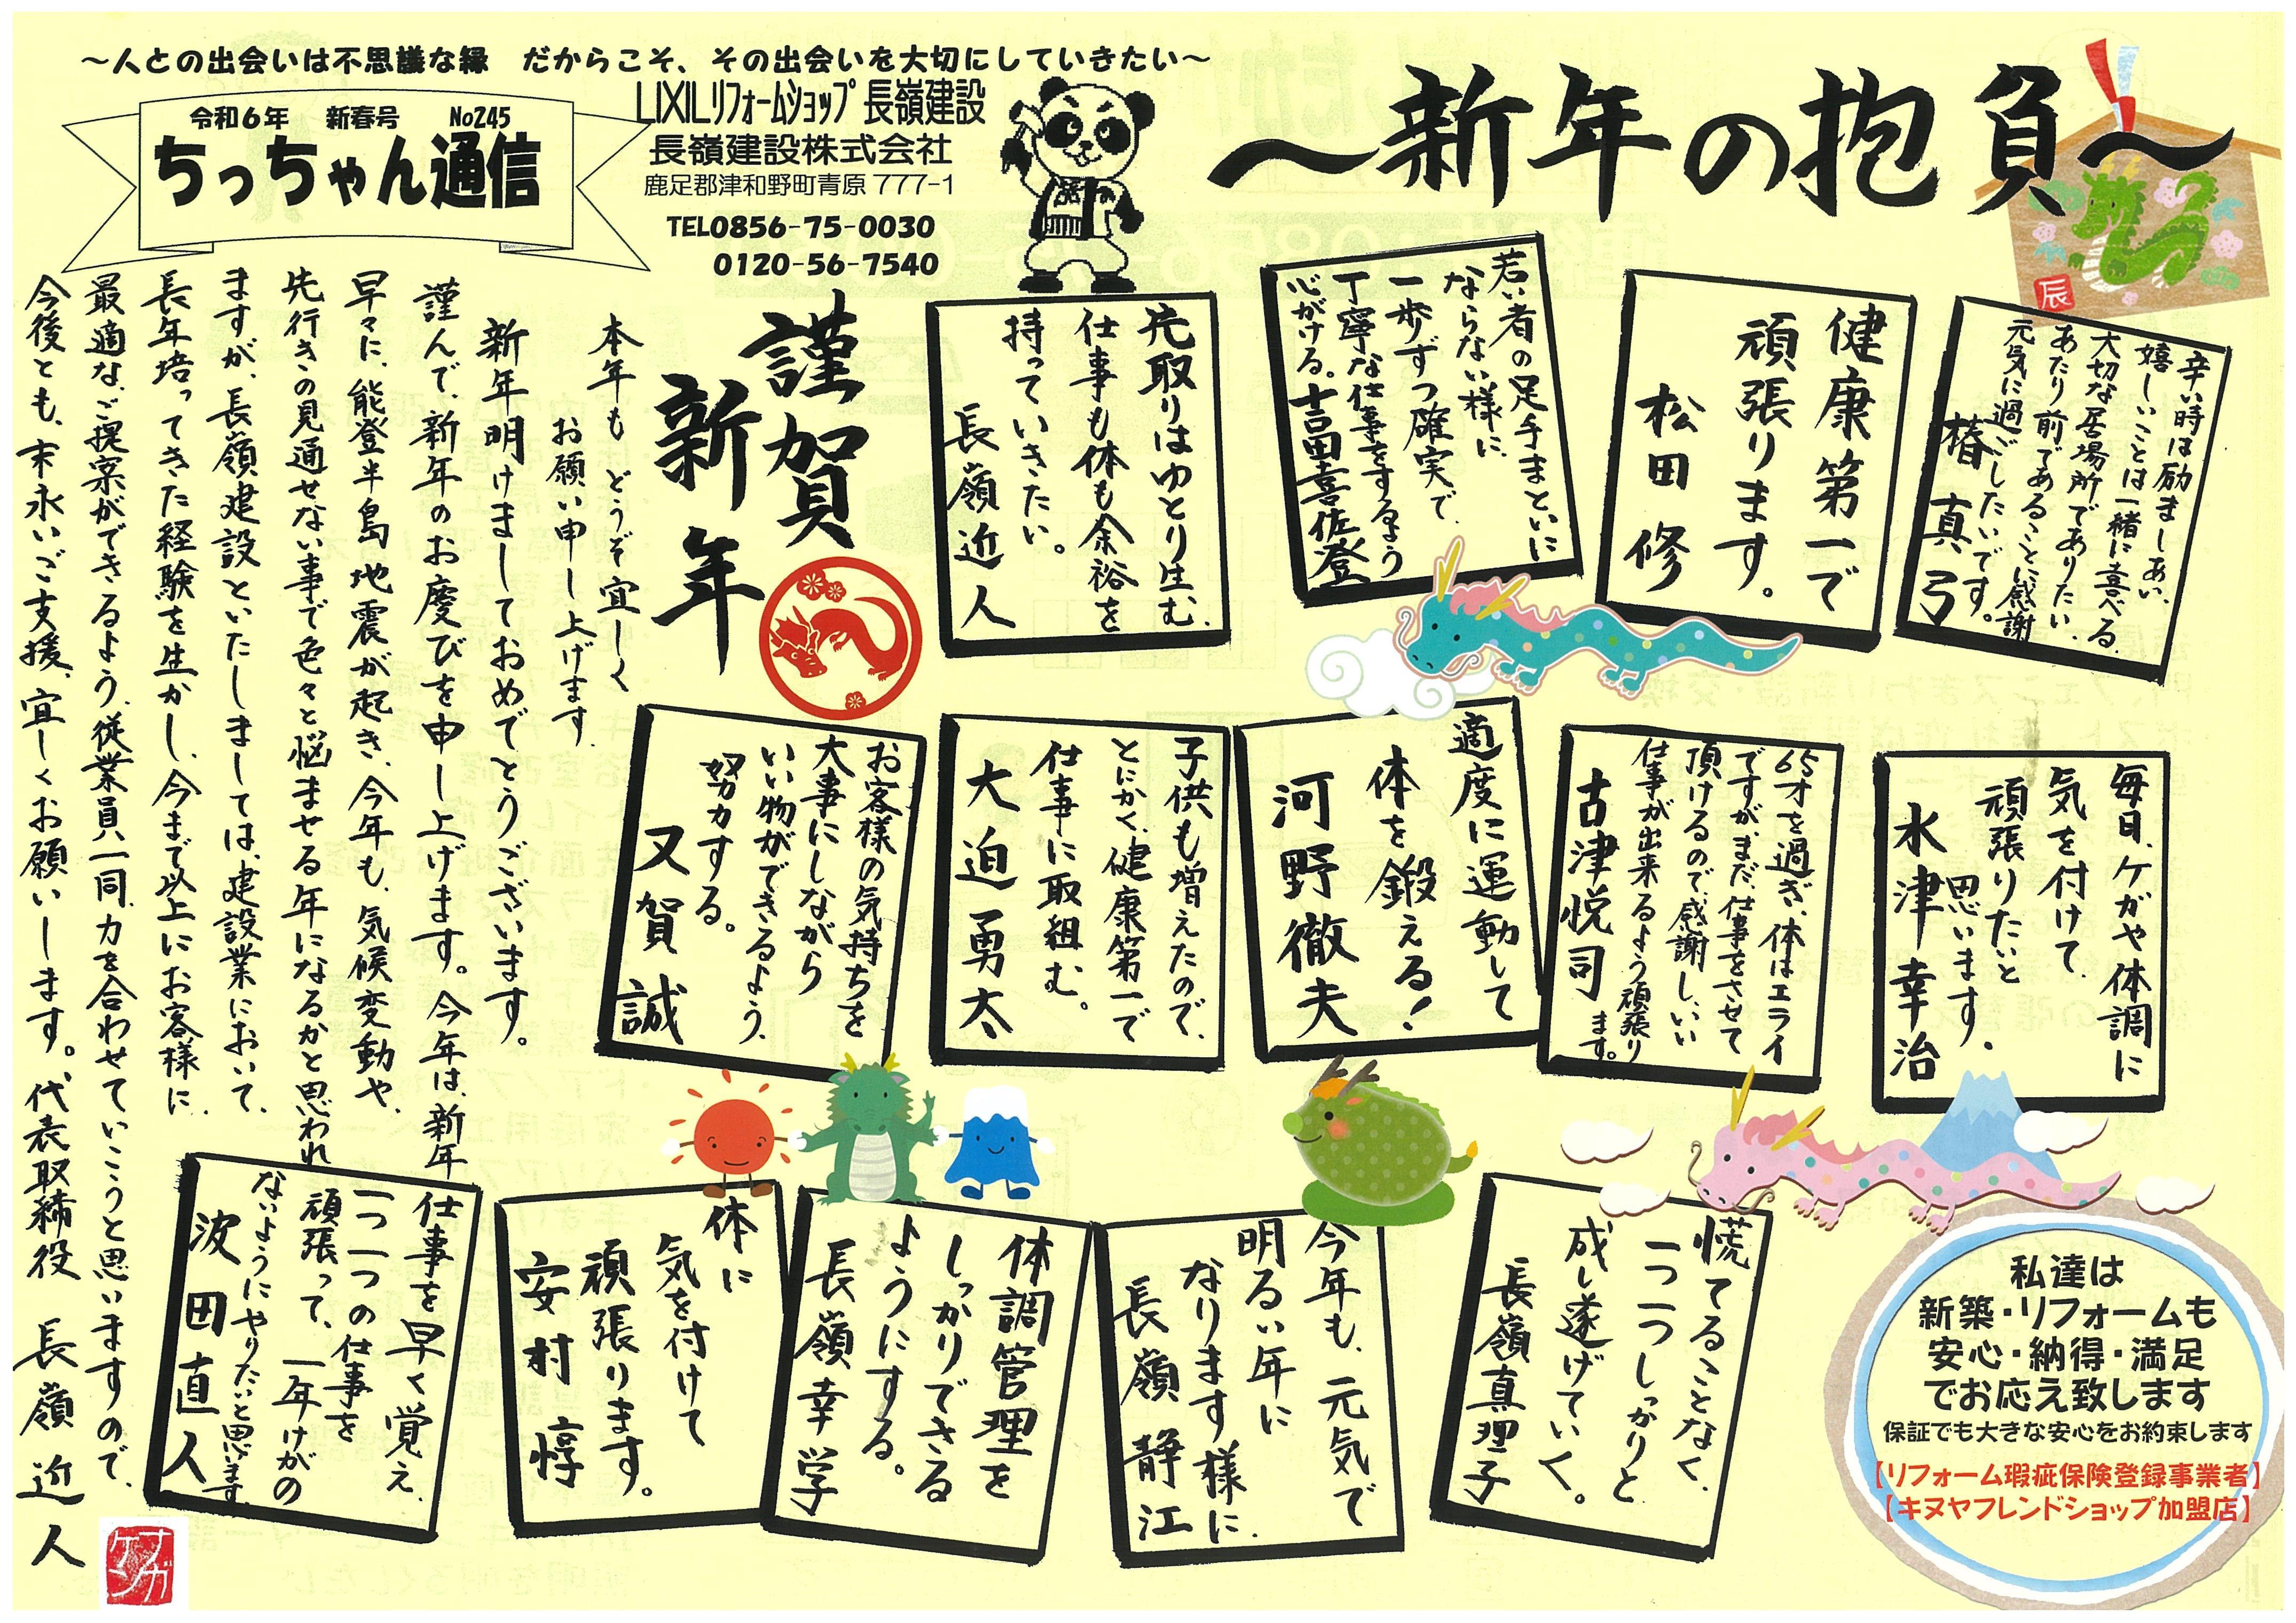 ～人との出会いは不思議な縁　だからこそ、その出会いを大切にしていきたい～
令和6年　新春号　No245
ちっちゃん通信
LIXILリフォームショップ 長嶺建設
長嶺建設株式会社
鹿足郡津和野町青原 777-1
TEL0856-75-0030
0120-56-7540
～新年の抱負～
辰
辛い時は励ましあい、
嬉しいことは一緒に喜べる
大切な居場所でありたい。
あたり前であることに感謝
元気に過ごしたいです。
椿 真弓
健康第一で
頑張ります。
松田 修
若い者の足手まといに
ならない様に
一歩ずつ確実で、
丁寧な仕事をするよう
心がける。
吉田喜佐登
先取りはゆとり生む。
仕事も体も余裕を
持っていきたい。
長嶺近人
謹賀
新年
本年も どうぞ宜しく
お願い申し上げます。
新年明けましておめでとうございます。
謹んで、新年のお慶びを申し上げます。今年は、新年
早々に、能登半島地震が起き、今年も、気候変動や、
先行きの見通せない事で色々と悩ませる年になるかと思われ
ますが、長嶺建設といたしましては、建設業において、
長年培ってきた経験を生かし、今まで以上にお客様に
最適な、ご提案ができるよう、従業員一同、力を合わせていこうと思いますので、
今後とも、末永いご支援、宜しくお願いします。代表取締役 長嶺 近人
毎日、ケガや体調に
気を付けて、
頑張りたいと
思います。
水津幸治
65才を過ぎ、体はエライ
ですが、まだ、仕事をさせて
頂けるので、感謝し、いい
仕事が出来るよう頑張り
ます。
古津悦司
適度に運動して
体を鍛える！
河野徹夫
子供も増えたので、
とにかく、健康第一で
仕事に取組む。
大迫勇太
お客様の気持ちを
大事にしながら
いい物ができるよう、
努力する。
又賀 誠
慌てることなく、
一つ一つしっかりと
成し遂げていく。
長嶺真理子
今年も、元気で
明るい年に
なります様に。
長嶺 静江
体調管理を
しっかりできる
ようにする。
長嶺幸学
体に
気を付けて
頑張ります。
安村 惇
仕事を早く覚え、
一つ一つの仕事を
頑張って、一年けがの
ないようにやりたいと思います。
波田直人
私達は
新築・リフォームも
安心・納得・満足
でお応え致します
保証でも大きな安心をお約束します
【リフォーム瑕疵保険登録事業者】
【キヌヤフレンドショップ加盟店】